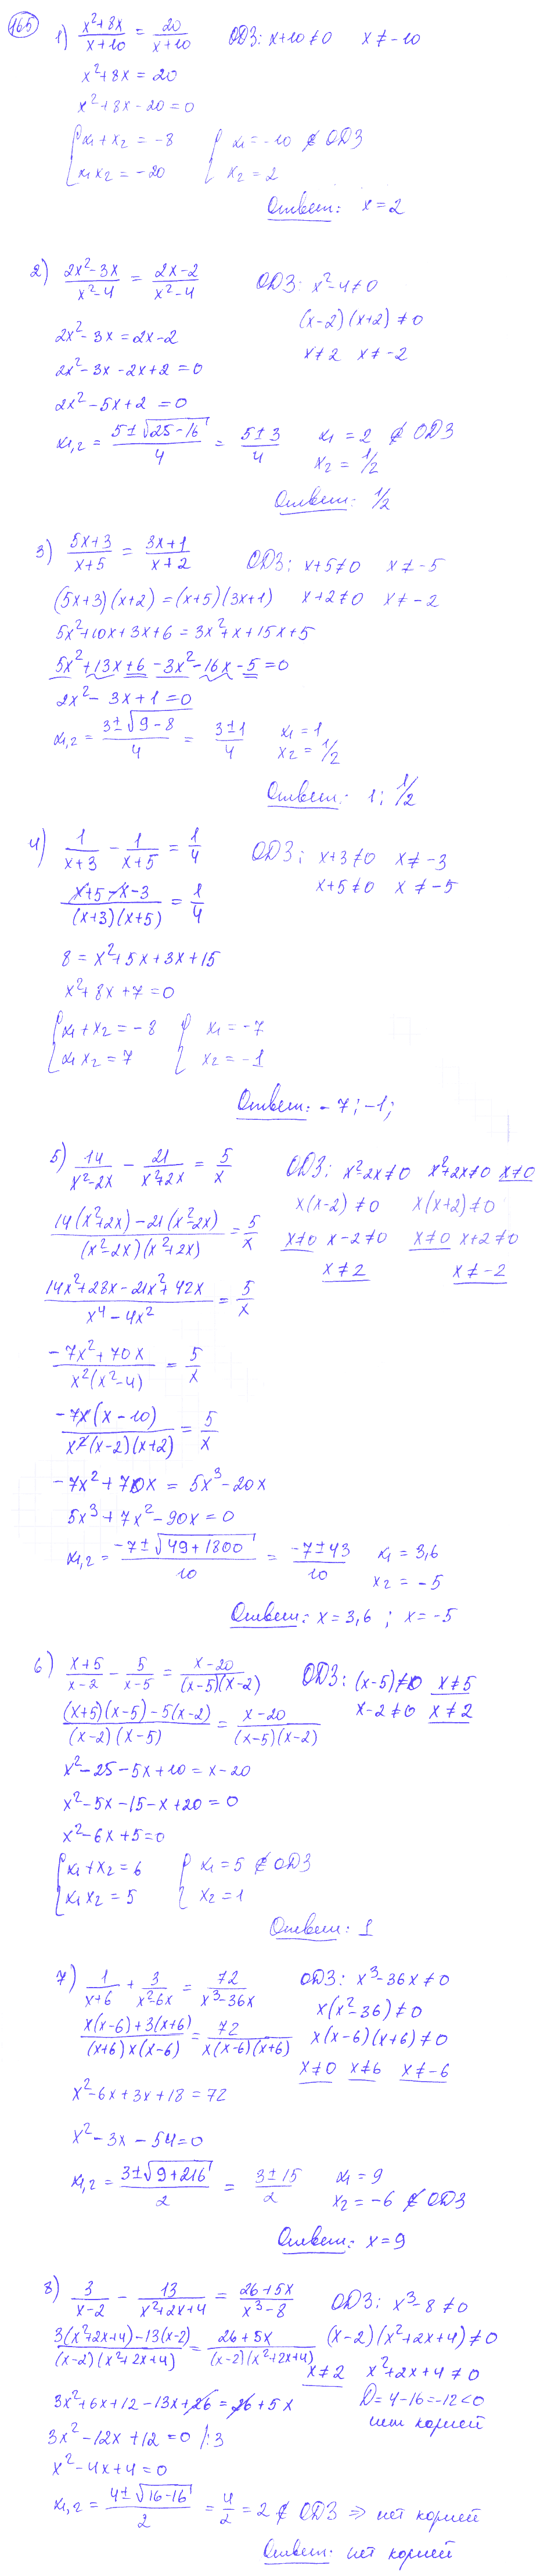 165
1) (x²+8x)/(x+10) = 20/(x+10)   ОДЗ: x+10≠0   x≠-10
x²+8x = 20
x²+8x-20=0
{x₁+x₂ = -8   {x₁=-10 ∉ ОДЗ
{x₁x₂ = -20   {x₂ = 2
Ответ: x=2
2) (2x²-3x)/(x²-4) = (2x-2)/(x²-4)   ОДЗ: x²-4≠0
(x-2)(x+2)≠0
2x²-3x=2x-2
x≠2   x≠-2
2x²-3x-2x+2=0
2x²-5x+2=0
x₁,₂ = (5±√(25-16))/4 = (5±3)/4   x₁=2 ∉ ОДЗ
x₂=1/2
Ответ: 1/2
3) (5x+3)/(x+5) = (3x+1)/(x+2)   ОДЗ: x+5≠0   x≠-5
(5x+3)(x+2)=(x+5)(3x+1)   x+2≠0   x≠-2
5x²+10x+3x+6=3x²+x+15x+5
5x²+13x+6-3x²-16x-5=0
2x²-3x+1=0
x₁,₂ = (3±√(9-8))/4 = (3±1)/4   x₁=1
x₂=1/2
Ответ: 1; 1/2
4) 1/(x+3) - 1/(x+5) = 1/4   ОДЗ: x+3≠0   x≠-3
x+5≠0   x≠-5
(x+5-x-3)/((x+3)(x+5)) = 1/4
8=x²+5x+3x+15
x²+8x+7=0
{x₁+x₂=-8   {x₁=-7
{x₁x₂=7   {x₂=-1
Ответ: -7; -1;
5) 14/(x²-2x) - 21/(x²+2x) = 5/x   ОДЗ: x²-2x≠0   x²+2x≠0   x≠0
x(x-2)≠0   x(x+2)≠0
(14(x²+2x)-21(x²-2x))/((x²-2x)(x²+2x)) = 5/x   x≠0   x-2≠0   x≠0   x+2≠0
x≠2   x≠-2
(14x²+28x-21x²+42x)/(x⁴-4x²) = 5/x
(-7x²+70x)/(x²(x²-4)) = 5/x
(-7x(x-10))/(x²(x-2)(x+2)) = 5/x
-7x²+70x = 5x³-20x
5x³+7x²-90x=0
x₁,₂ = (-7±√(49+1800))/10 = (-7±43)/10   x₁=3,6
x₂=-5
Ответ: x=3,6; x=-5
6) (x+5)/(x-2) - 5/(x-5) = (x-20)/((x-5)(x-2))   ОДЗ: (x-5)≠0   x≠5
x-2≠0   x≠2
((x+5)(x-5)-5(x-2))/((x-2)(x-5)) = (x-20)/((x-5)(x-2))
x²-25-5x+10=x-20
x²-5x-15-x+20=0
x²-6x+5=0
{x₁+x₂=6   {x₁=5 ∉ ОДЗ
{x₁x₂=5   {x₂=1
Ответ: 1
7) 1/(x+6) + 3/(x²-6x) = 72/(x³-36x)   ОДЗ: x³-36x≠0
x(x²-36)≠0
(x(x-6)+3(x+6))/((x+6)x(x-6)) = 72/(x(x-6)(x+6))   x(x-6)(x+6)≠0
x≠0   x≠6   x≠-6
x²-6x+3x+18=72
x²-3x-54=0
x₁,₂ = (3±√(9+216))/2 = (3±15)/2   x₁=9
x₂=-6 ∉ ОДЗ
Ответ: x=9
8) 3/(x-2) - 13/(x²+2x+4) = (26+5x)/(x³-8)   ОДЗ: x³-8≠0
(3(x²+2x+4)-13(x-2))/((x-2)(x²+2x+4)) = (26+5x)/((x-2)(x²+2x+4))   (x-2)(x²+2x+4)≠0
x≠2   x²+2x+4≠0
3x²+6x+12-13x+26=26+5x   D=4-16=-12<0
нет корней
3x²-12x+12=0 |:3
x²-4x+4=0
x₁,₂ = (4±√(16-16))/2 = 4/2 = 2 ∉ ОДЗ ⇒ нет корней
Ответ: нет корней